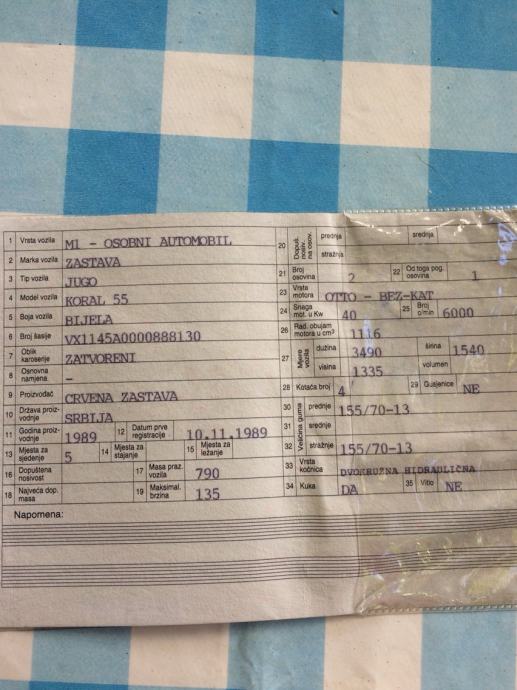 1 Vrsta vozila M1 - OSOBNI AUTOMOBIL
2 Marka vozila ZASTAVA
3 Tip vozila JUGO
4 Model vozila KORAL 55
5 Boja vozila BIJELA
6 Broj šasije VX1145A0000888130
7 Oblik karoserije ZATVORENI
8 Osnovna namjena -
9 Proizvođač CRVENA ZASTAVA
10 Država proizvodnje SRBIJA
11 Godina proizvodnje 1989 12 Datum prve registracije 10.11.1989
13 Mjesta za sjedenje 5 14 Mjesta za stajanje 15 Mjesta za ležanje
16 Dopuštena nosivost 17 Masa praz. vozila 790
18 Najveća dop. masa 19 Maksimal. brzina 135
Napomena:
20 Dopušt. nosiv. na osov. prednja srednja
stražnja
21 Broj osovina 2 22 Od toga pog. osovina 1
23 Vrsta motora OTTO - BEZ-KAT
24 Snaga mot. u Kw 40 25 Broj o/min 6000
26 Rad. obujam motora u cm³ 1116
27 Mjere vozila dužina 3490 širina 1540
visina 1335 volumen
28 Kotača broj 4 29 Gusjenice NE
30 Veličina guma prednje 155/70-13
31 srednje
32 stražnje 155/70-13
33 Vrsta kočnica DVOKRUŽNA HIDRAULIČNA
34 Kuka DA 35 Vitlo NE